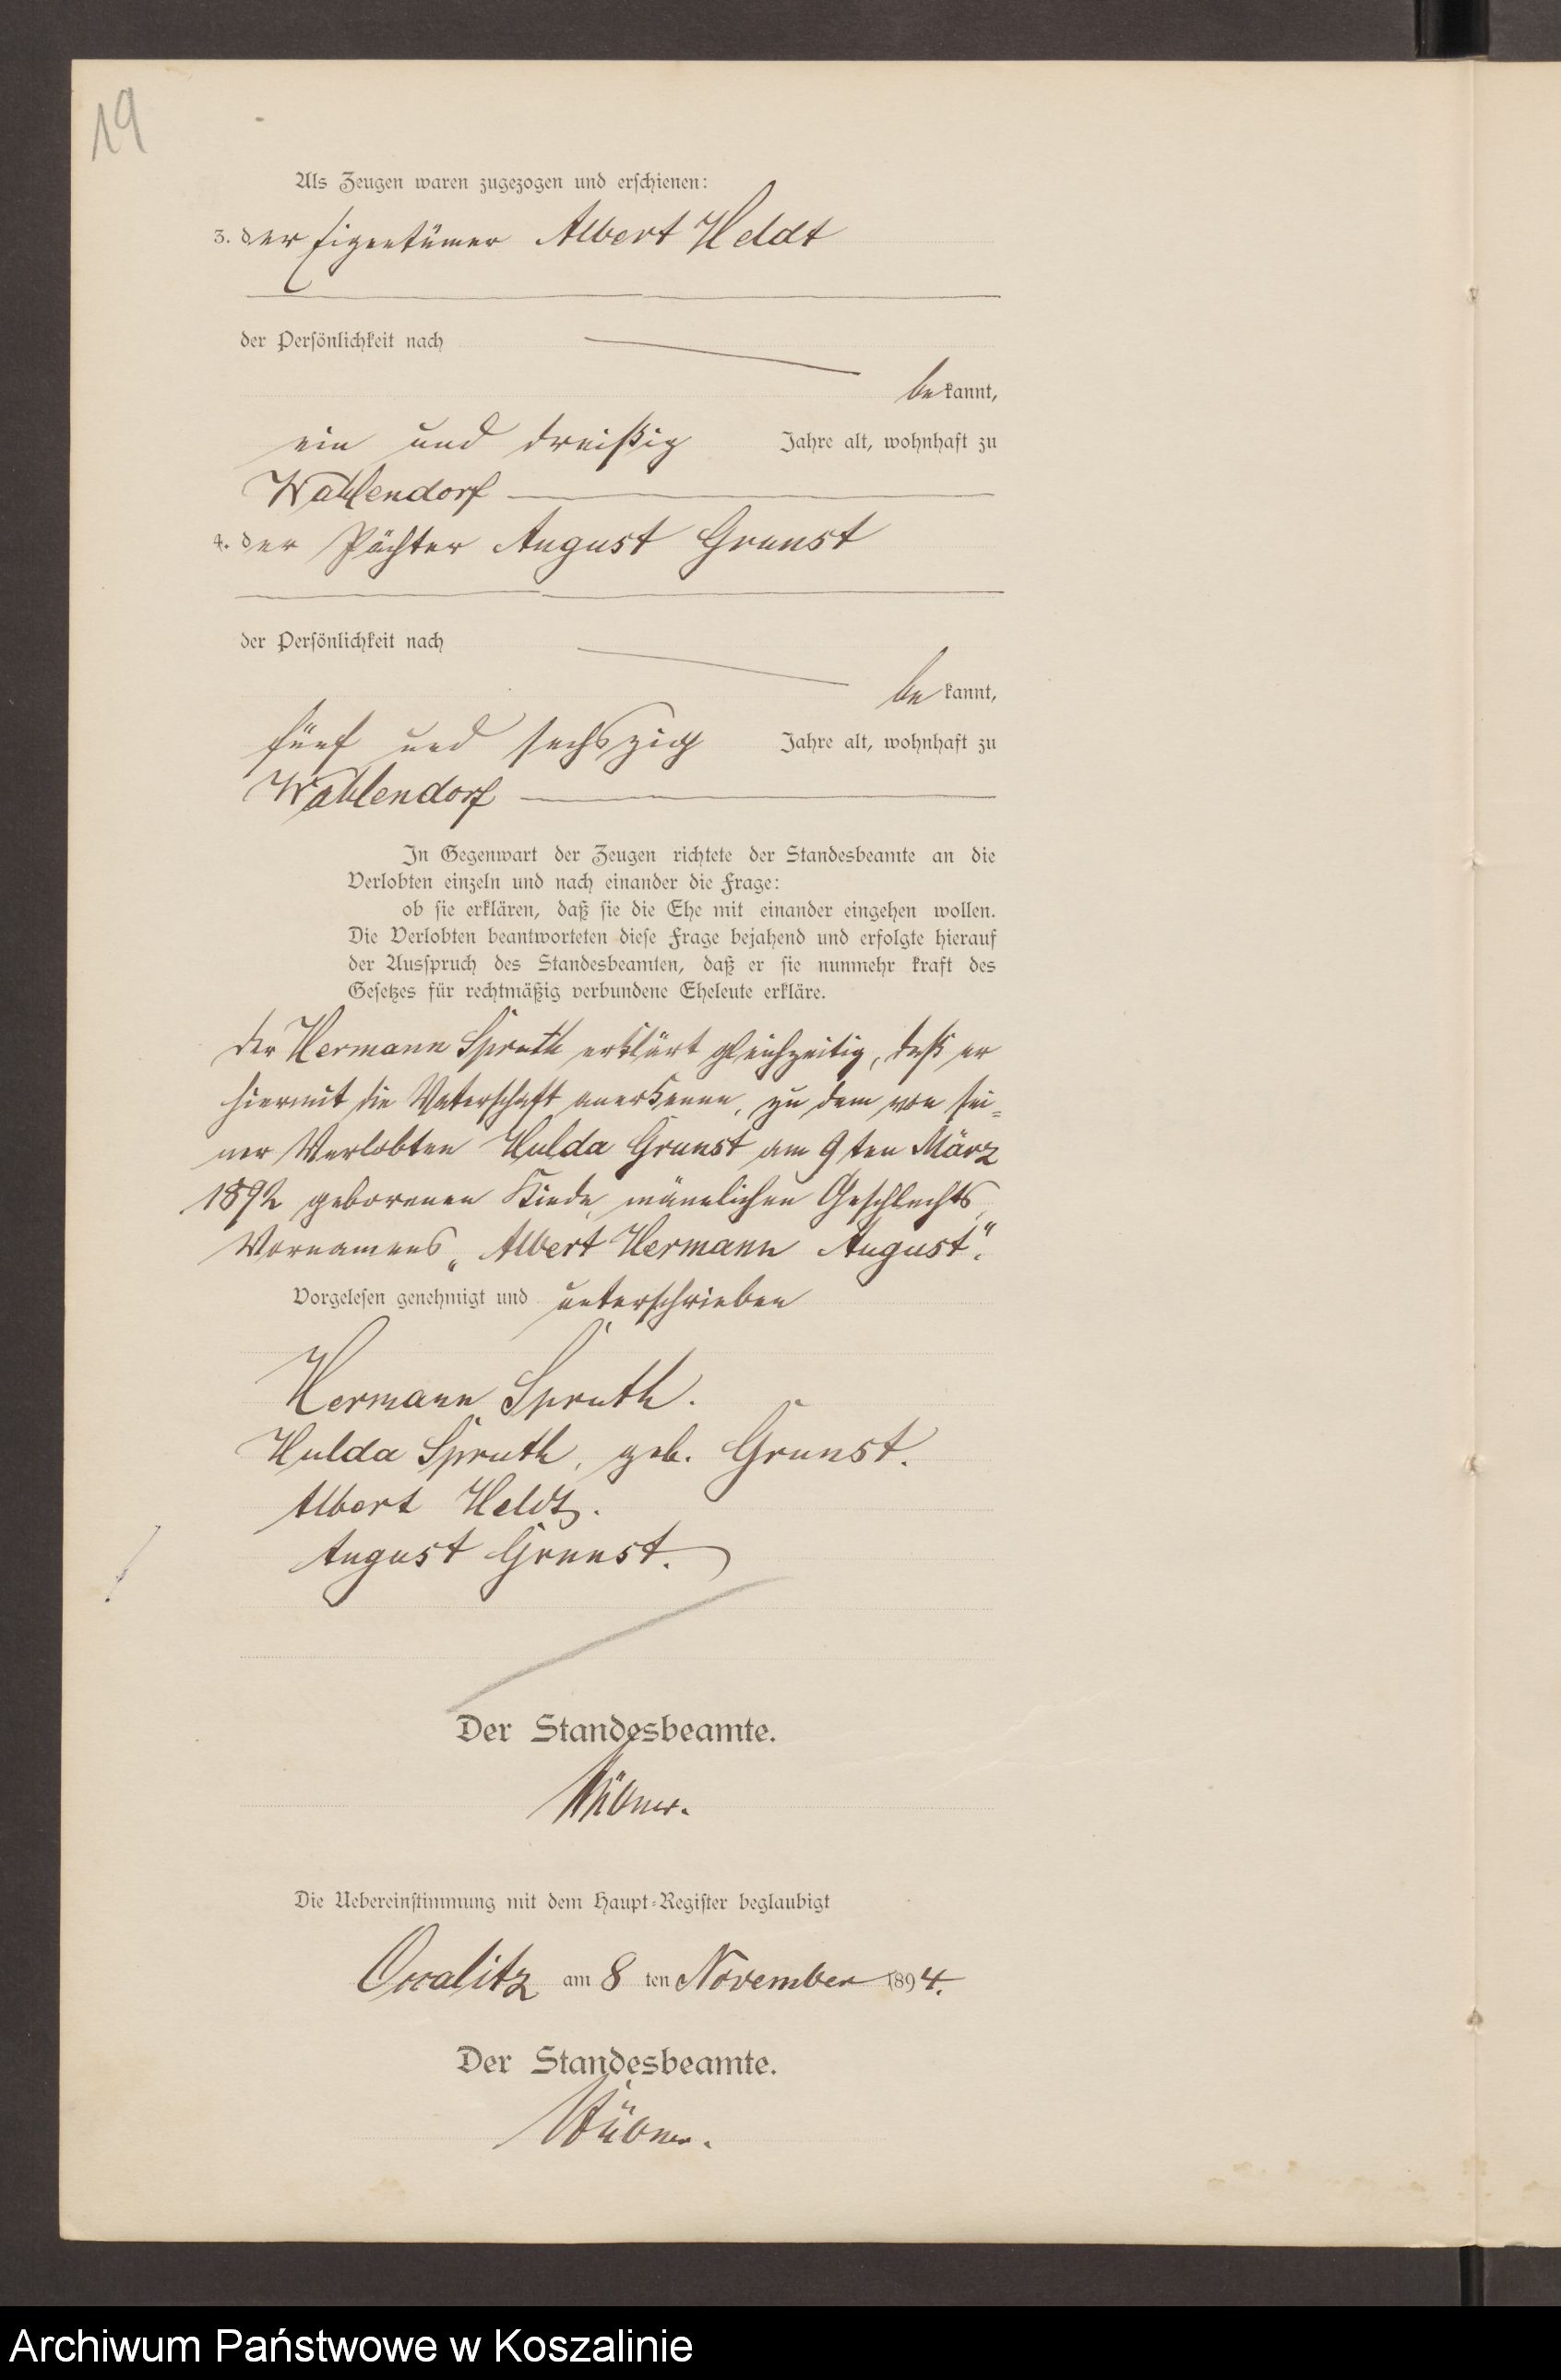 19
Als Zeugen waren zugezogen und erschienen:
3. der Eigentümer Albert Heldt
der Persönlichkeit nach
bekannt,
ein und dreißig Jahre alt, wohnhaft zu
Wahlendorf
4. der Pächter August Grunst
der Persönlichkeit nach
bekannt,
fünf und sechszig Jahre alt, wohnhaft zu
Wahlendorf
In Gegenwart der Zeugen richtete der Standesbeamte an die
Verlobten einzeln und nach einander die Frage:
ob sie erklären, daß sie die Ehe mit einander eingehen wollen.
Die Verlobten beantworteten diese Frage bejahend und erfolgte hierauf
der Ausspruch des Standesbeamten, daß er sie nunmehr kraft des
Gesetzes für rechtmäßig verbundene Eheleute erkläre.
Der Hermann Spruth erklärt gleichzeitig, daß er
hiermit die Vaterschaft anerkenne, zu dem von sei=
ner Verlobten Hulda Grunst am 9ten März
1892 geborenen Kinde, männlichen Geschlechts,
Vornamens „Albert Hermann August“.
Vorgelesen genehmigt und unterschrieben
Hermann Spruth.
Hulda Spruth, geb. Grunst.
Albert Heldt.
August Grunst.
Der Standesbeamte.
Die Uebereinstimmung mit dem Haupt-Register beglaubigt
am 8 ten November 1894.
Der Standesbeamte.
Archiwum Państwowe w Koszalinie